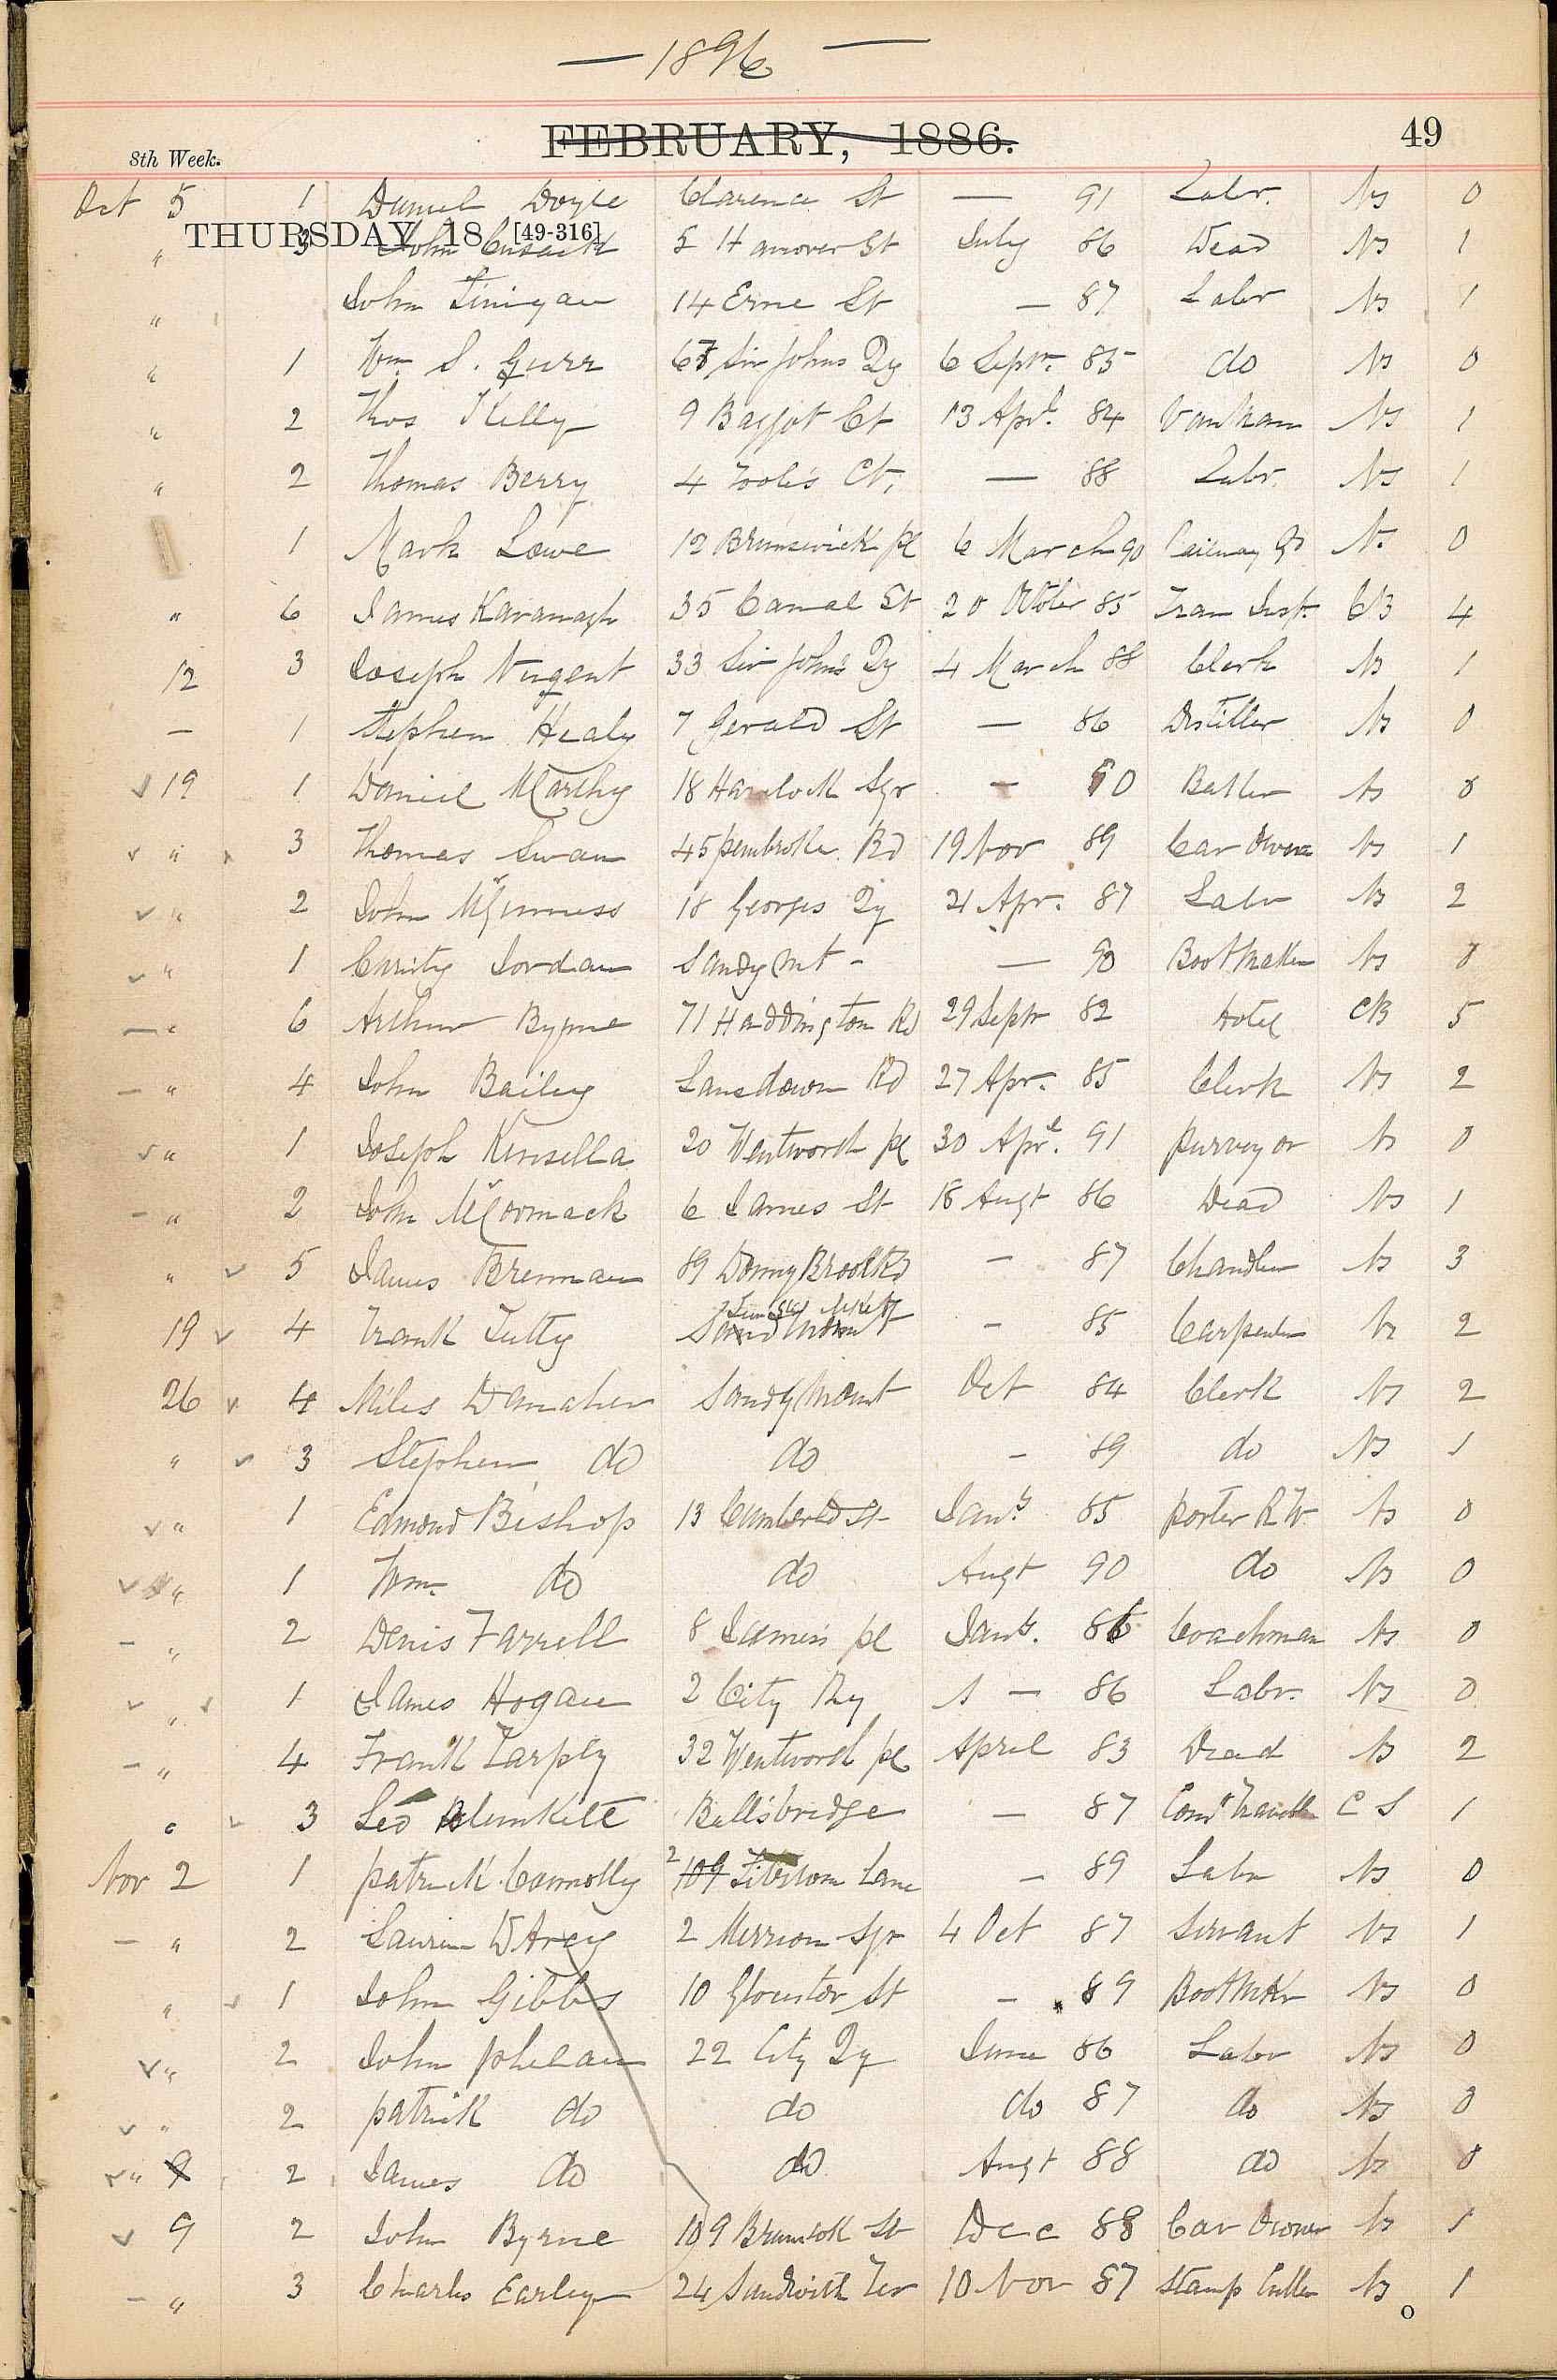 — 1896 —
FEBRUARY, 1886. 49
8th Week.
Oct 5 1 Daniel Doyle Clarence St — 91 Labr. Ns 0
THURSDAY 18 [49-316]
" 3 John Cusack 5 Hanover St July 86 Dead Ns 1
" John Finigan 14 Erne St — 87 Labr Ns 1
" 1 Wm S. Gurr 67 Sir Johns Qy 6 Septr. 85 do Ns 0
" 2 Thos Kelly 9 Baggot Ct 13 Aprl. 84 Vanman Ns 1
" 2 Thomas Berry 4 Tooles Ct, — 88 Labr. Ns 1
1 Mark Lowe 12 Brunswick pl 6 March 90 Railway Gd Ns 0
" 6 James Kavanagh 35 Camal St 20 October 85 Tram Inspr. CB 4
12 3 Joseph Nugent 33 Sir John's Qy 4 March 88 Clerk Ns 1
— 1 Stephen Healy 7 Gerald St — 86 Distiller Ns 0
✓ 19 1 Daniel McCarthy 18 Havelock Sqr — 90 Butler Ns 0
✓ " 3 Thomas Swan 45 pembroke Rd 19 Nov 89 Car Owner Ns 1
✓ " 2 John McGuinness 18 Georges Qy 21 Apr. 87 Labr Ns 2
✓ " 1 Jordan Sandymt - — 90 Bootmaker Ns 0
— " 6 Arthur Byrne 71 Haddington Rd 29 Septr 82 Hotel CB 5
— " 4 John Bailey Lansdown Rd 27 Apr. 85 Clerk Ns 2
✓ " 1 Joseph Kinsella 20 Wentworth pl 30 Aprl. 91 purveyor Ns 0
— " 2 John McCormack 6 James St 18 Augt 86 Dead Ns 1
" ✓ 5 James Brennan 89 DonnyBrook Rd — 87 Chandler Ns 3
19 ✓ 4 Frank Tutty Sandymount — 85 Carpenter Ns 2
26 ✓ 4 Miles Danaher Sandymount Oct 84 Clerk Ns 2
" ✓ 3 Stephen do do — 89 do Ns 1
✓ " 1 Edmond Bishop 13 Cumberld St Jany. 85 porter R.W. Ns 0
✓ " 1 Wm. do do Augt 90 do Ns 0
— " 2 Denis Farrell 8 James's pl Jany. 86 Coachman Ns 0
✓ " ✓ 1 James Hogan 2 City Qy — 86 Labr. Ns 0
— " 4 Frank Tarpey 32 Wentworth pl April 83 Dead Ns 2
" ✓ 3 Leo Plunkett Ballsbridge — 87 Coml Traveller C S 1
Nov 2 1 patrick Connolly 2 109 Lane — 89 Labr Ns 0
— " 2 D'Arcy 2 Merrion Sqr 4 Oct 87 Servant Ns 1
" ✓ 1 John Gibbs 10 Gloustor St — 89 Bootmkr Ns 0
✓ " 2 John phelan 22 City Qy June 86 Labr Ns 0
✓ " 2 patrick do do do 87 do Ns 0
✓ " 9 2 James do do Augt 88 do Ns 0
✓ 9 2 John Byrne 109 Brunswk St Dec 88 Car Owner Ns 1
— " 3 Charles Earley 24 Sandwith Ter 10 Nov 87 Stamp Cutter Ns 1
O